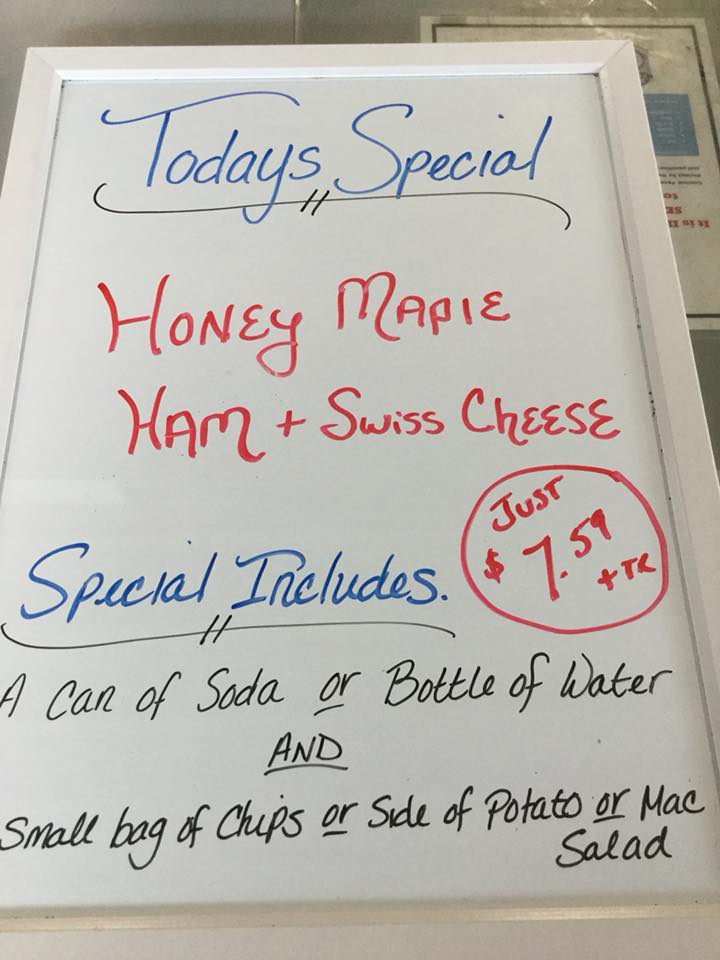 Todays Special
HONEY MAPLE
HAM + SWISS CHEESE
JUST
$ 7.59
+ TX
Special Includes.
A Can of Soda or Bottle of Water
AND
Small bag of Chips or Side of Potato or Mac
Salad